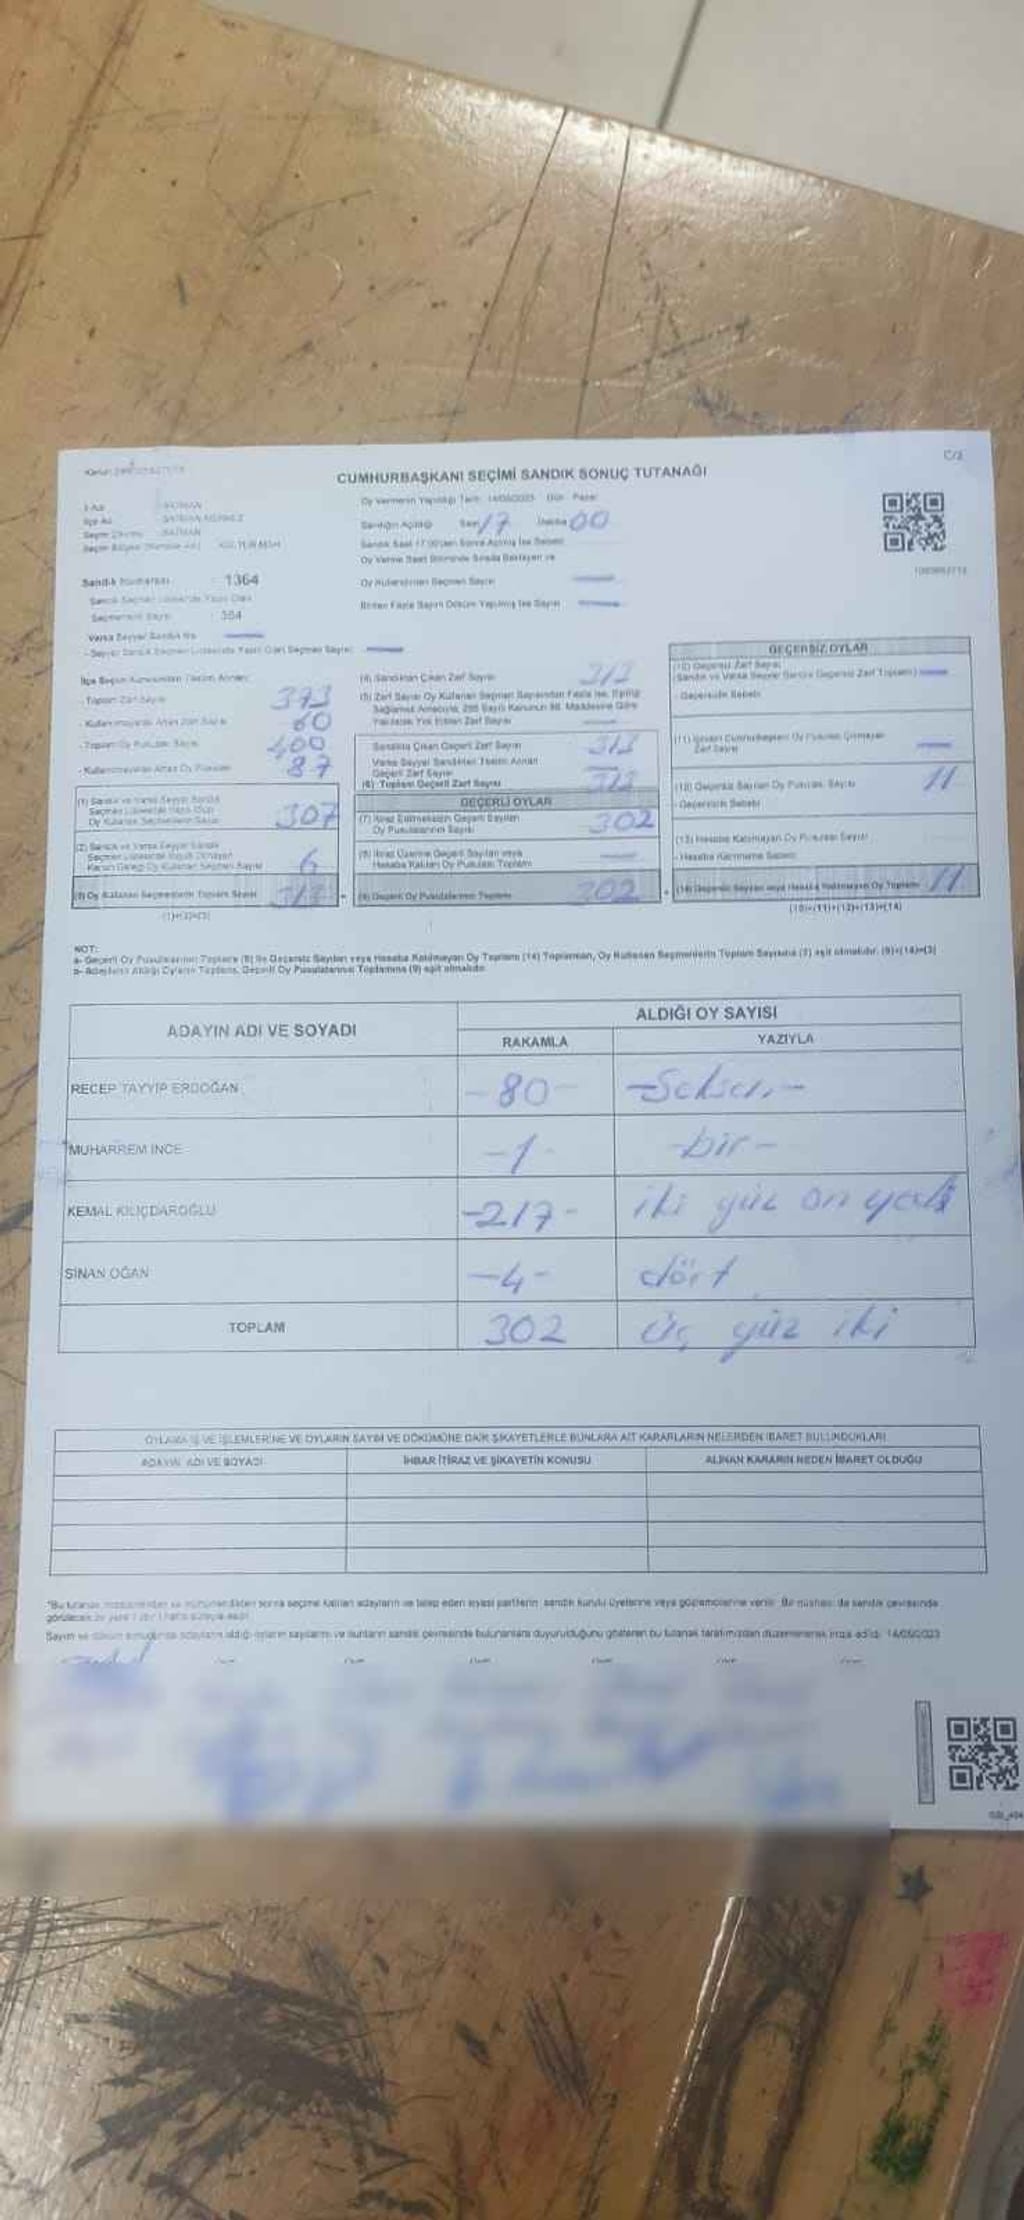 C/2
CUMHURBAŞKANI SEÇİMİ SANDIK SONUÇ TUTANAĞI
İl Adı : BATMAN
İlçe Adı : BATMAN MERKEZ
Seçim Çevresi : BATMAN
Oy Vermenin Yapıldığı Tarih: 14/05/2023 Gün: Pazar
Sandığın Açıldığı Saat 17 Dakika 00
Sandık Saat 17.00'den Sonra Açılmış İse Sebebi
Oy Verme Saati Bitiminde Sırada Bekleyen ve
Oy Kullandırılan Seçmen Sayısı
Birden Fazla Sayım Döküm Yapılmış İse Sayısı
Sandık Numarası : 1364
Sandık Seçmen Listesinde Yazılı Olan
Seçmenlerin Sayısı : 364
Varsa Seyyar Sandık No
- Seyyar Sandık Seçmen Listesinde Yazılı Olan Seçmen Sayısı
İlçe Seçim Kurulundan Teslim Alınan
- Toplam Zarf Sayısı 373
- Kullanılmayarak Artan Zarf Sayısı 60
- Toplam Oy Pusulası Sayısı 400
- Kullanılmayarak Artan Oy Pusulası 87
(1) Sandık ve Varsa Seyyar Sandık
Seçmen Listesinde Yazılı Olan
Oy Kullanan Seçmenlerin Sayısı 307
(2) Sandık ve Varsa Seyyar Sandık
Seçmen Listesinde Kayıtlı Olmayan
Kanun Gereği Oy Kullanan Seçmen Sayısı 6
(3) Oy Kullanan Seçmenlerin Toplam Sayısı 313
(1)+(2)=(3)
(4) Sandıktan Çıkan Zarf Sayısı 313
(5) Zarf Sayısı Oy Kullanan Seçmen Sayısından Fazla İse, Eşitliği
Sağlamak Amacıyla, 298 Sayılı Kanunun 98. Maddesine Göre
Yakılarak Yok Edilen Zarf Sayısı
Sandıkta Çıkan Geçerli Zarf Sayısı 313
Varsa Seyyar Sandıktan Teslim Alınan
Geçerli Zarf Sayısı
(6) Toplam Geçerli Zarf Sayısı 313
GEÇERLİ OYLAR
(7) İtiraz Edilmeksizin Geçerli Sayılan
Oy Pusulalarının Sayısı 302
(8) İtiraz Üzerine Geçerli Sayılan veya
Hesaba Katılan Oy Pusulası Toplamı
(9) Geçerli Oy Pusulalarının Toplamı 302
GEÇERSİZ OYLAR
(10) Geçersiz Zarf Sayısı
(Sandık ve Varsa Seyyar Sandık Geçersiz Zarf Toplamı)
- Geçersizlik Sebebi
(11) İçinden Cumhurbaşkanı Oy Pusulası Çıkmayan
Zarf Sayısı
(12) Geçersiz Sayılan Oy Pusulası Sayısı 11
- Geçersizlik Sebebi
(13) Hesaba Katılmayan Oy Pusulası Sayısı
- Hesaba Katılmama Sebebi
(14) Geçersiz Sayılan veya Hesaba Katılmayan Oy Toplamı 11
(10)+(11)+(12)+(13)=(14)
NOT:
a- Geçerli Oy Pusulalarının Toplamı (9) ile Geçersiz Sayılan veya Hesaba Katılmayan Oy Toplamı (14) Toplamları, Oy Kullanan Seçmenlerin Toplam Sayısına (3) eşit olmalıdır. (9)+(14)=(3)
b- Adayların Aldığı Oyların Toplamı, Geçerli Oy Pusulalarının Toplamına (9) eşit olmalıdır.
ADAYIN ADI VE SOYADI
ALDIĞI OY SAYISI
RAKAMLA
YAZIYLA
RECEP TAYYİP ERDOĞAN -80- -Seksen-
MUHARREM İNCE -1- -bir-
KEMAL KILIÇDAROĞLU -217- iki yüz on yedi
SİNAN OĞAN -4- dört
TOPLAM 302 üç yüz iki
OYLAMA İŞ VE İŞLEMLERİNE VE OYLARIN SAYIM VE DÖKÜMÜNE DAİR ŞİKAYETLERLE BUNLARA AİT KARARLARIN NELERDEN İBARET BULUNDUKLARI
ADAYIN ADI VE SOYADI
İHBAR İTİRAZ VE ŞİKAYETİN KONUSU
ALINAN KARARIN NEDEN İBARET OLDUĞU